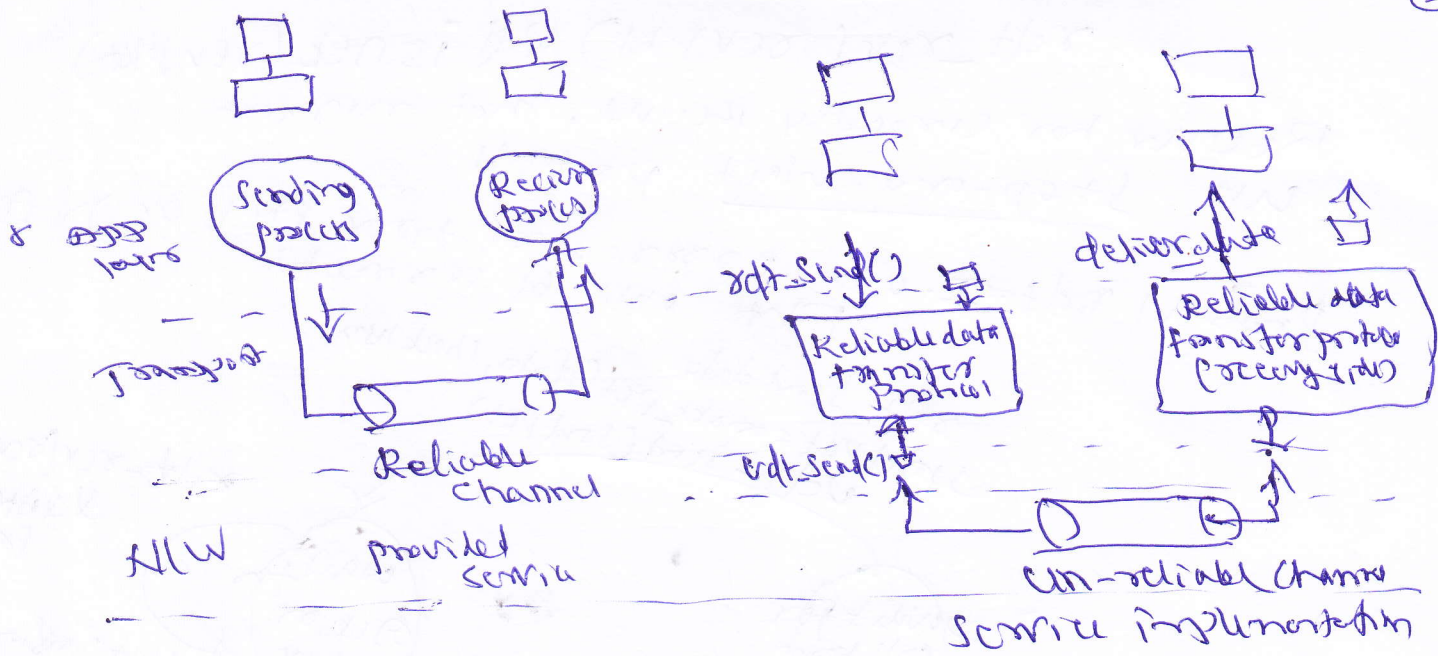 Sending
process
Reciving
process
App
layer
Transport
Reliable
channel
N/W
provided
service
rdt_send()
Reliable data
transfer
protocol
udt_send()
deliver_data
Reliable data
transfer
un-reliable channel
service implementation